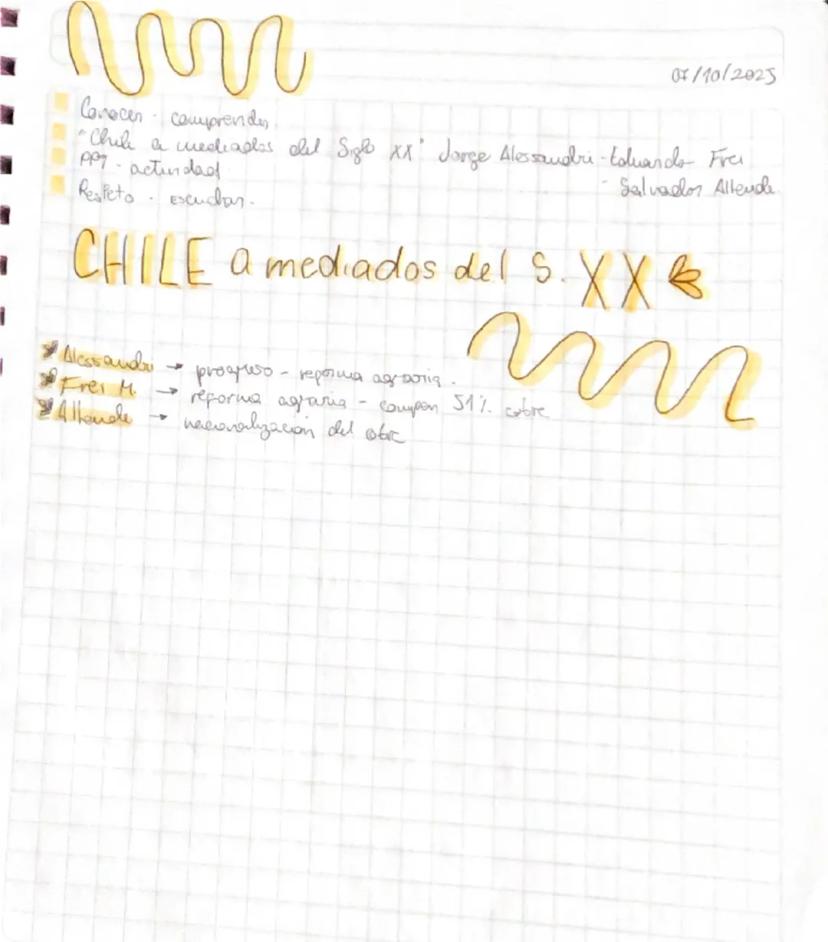 07/10/2025
Conocer - comprender.
"Chile a mediados del Siglo XX" Jorge Alessandri - Eduardo Frei
- Salvador Allende
PPT - actividad
Respeto - escuchar.
CHILE a mediados del S. XX
Alessandri → progreso - reforma agraria.
Frei M. → reforma agraria - compan 51% cobre
Allende → nacionalización del cobre